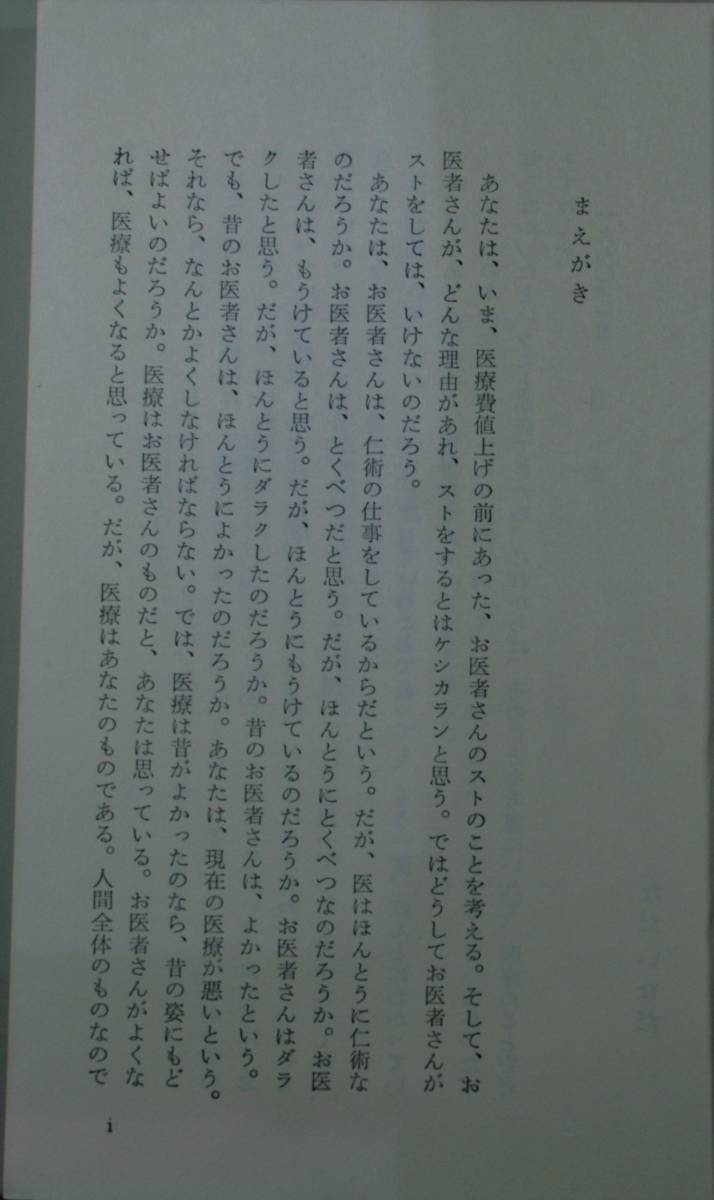 まえがき
あなたは、いま、医療費値上げの前にあった、お医者さんのストのことを考える。そして、お
医者さんが、どんな理由があれ、ストをするとはケシカランと思う。ではどうしてお医者さんが
ストをしては、いけないのだろう。
あなたは、お医者さんは、仁術の仕事をしているからだという。だが、医はほんとうに仁術な
のだろうか。お医者さんは、とくべつだと思う。だが、ほんとうにとくべつなのだろうか。お医
者さんは、もうけていると思う。だが、ほんとうにもうけているのだろうか。お医者さんはダラ
クしたと思う。だが、ほんとうにダラクしたのだろうか。昔のお医者さんは、よかったという。
でも、昔のお医者さんは、ほんとうによかったのだろうか。あなたは、現在の医療が悪いという。
それなら、なんとかよくしなければならない。では、医療は昔がよかったのなら、昔の姿にもど
せばよいのだろうか。医療はお医者さんのものだと、あなたは思っている。お医者さんがよくな
れば、医療もよくなると思っている。だが、医療はあなたのものである。人間全体のものなので
i